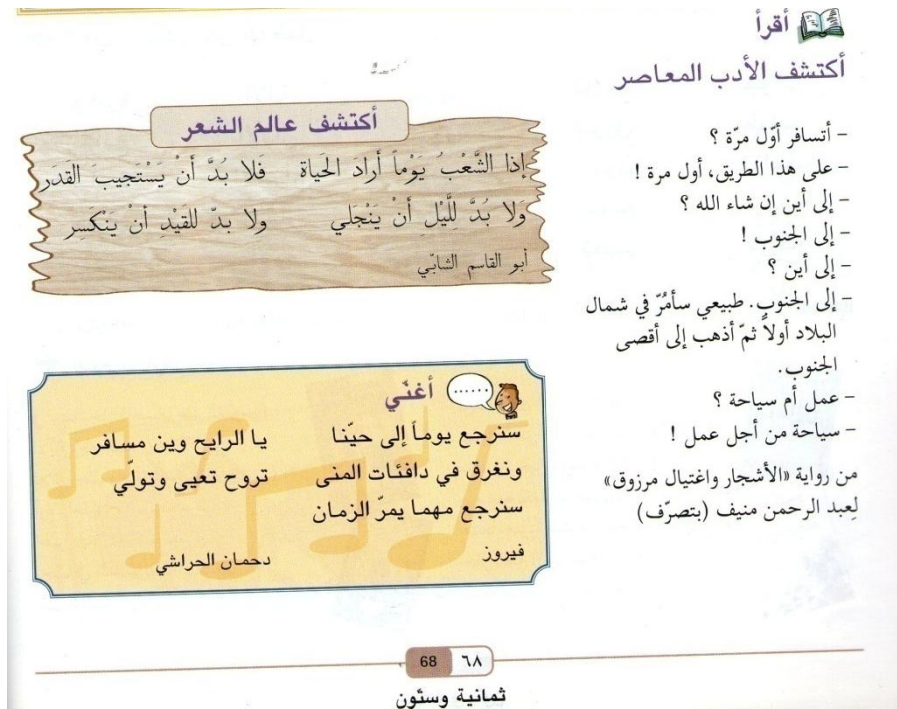 أقرأ
أكتشف الأدب المعاصر
- أتسافر أوّل مرّة ؟
- على هذا الطريق، أول مرة !
- إلى أين إن شاء الله ؟
- إلى الجنوب !
- إلى أين ؟
- إلى الجنوب. طبيعي سأمُرّ في شمال
البلاد أولاً ثمّ أذهب إلى أقصى
الجنوب.
- عمل أم سياحة ؟
- سياحة من أجل عمل !
من رواية «الأشجار واغتيال مرزوق»
لِعبد الرحمن منيف (بتصرّف)
أكتشف عالم الشعر
إذا الشَّعْبُ يَوْماً أرادَ الحَياة فَلا بُدَّ أَنْ يَسْتَجيبَ القَدَر
وَلا بُدَّ لِلَّيْلِ أَنْ يَنْجَلي ولا بدّ للقَيْدِ أنْ يَنْكَسِر
أبو القاسم الشابّي
......
أغنّي
سنرجع يوماً إلى حيّنا
ونغرق في دافئات المنى
سنرجع مهما يمرّ الزمان
فيروز
يا الرايح وين مسافر
تروح تعيى وتولّي
دحمان الحراشي
68 ٦٨
ثمانية وستّون